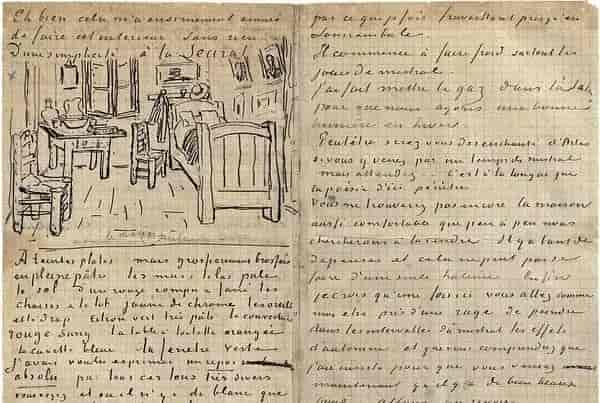 Eh bien cela m'a enormement amusé
de faire cet interieur sans rien
D'une simplicité à la Seurat
A teintes plates mais grossierement brossées
en pleine pâte les murs lilas pale
le sol d'un rouge rompu & fané les
chaises & le lit jaune de chrome les oreillers
et le drap citron vert très pâle la couverture
rouge sang la table à toilette orangée
la cuvette bleue la fenetre verte
J'avais voulu exprimer un repos
absolu par tous ces tons très divers
vous voyez et où il n'y a de blanc que
par ce que je fois travaillant presqu'en
somnambule.
Il commence à faire froid surtout les
jours de mistral.
J'ai fait mettre le gaz dans
pour que nous ayons une bonne
lumiere en hiver.
Peutêtre serez vous desenchanté d'Arles
si vous y venez par un temps de mistral
mais attendez... C'est à la longue que
la poésie d'ici penètre
Vous ne trouverez pas encore la maison
aussi comfortable que peu à peu nous
chercherons à la rendre Il y a tant de
depenses et cela ne peut pas se
faire d'une seule haleine Enfin
je crois qu'une fois ici vous allez comme
moi etre pris d'une rage de peindre
dans les intervalles du mistral les effets
d'automne et que vous comprendrez que
j'aie insisté pour que vous veniez
maintenant qu'il y a de bien beaux